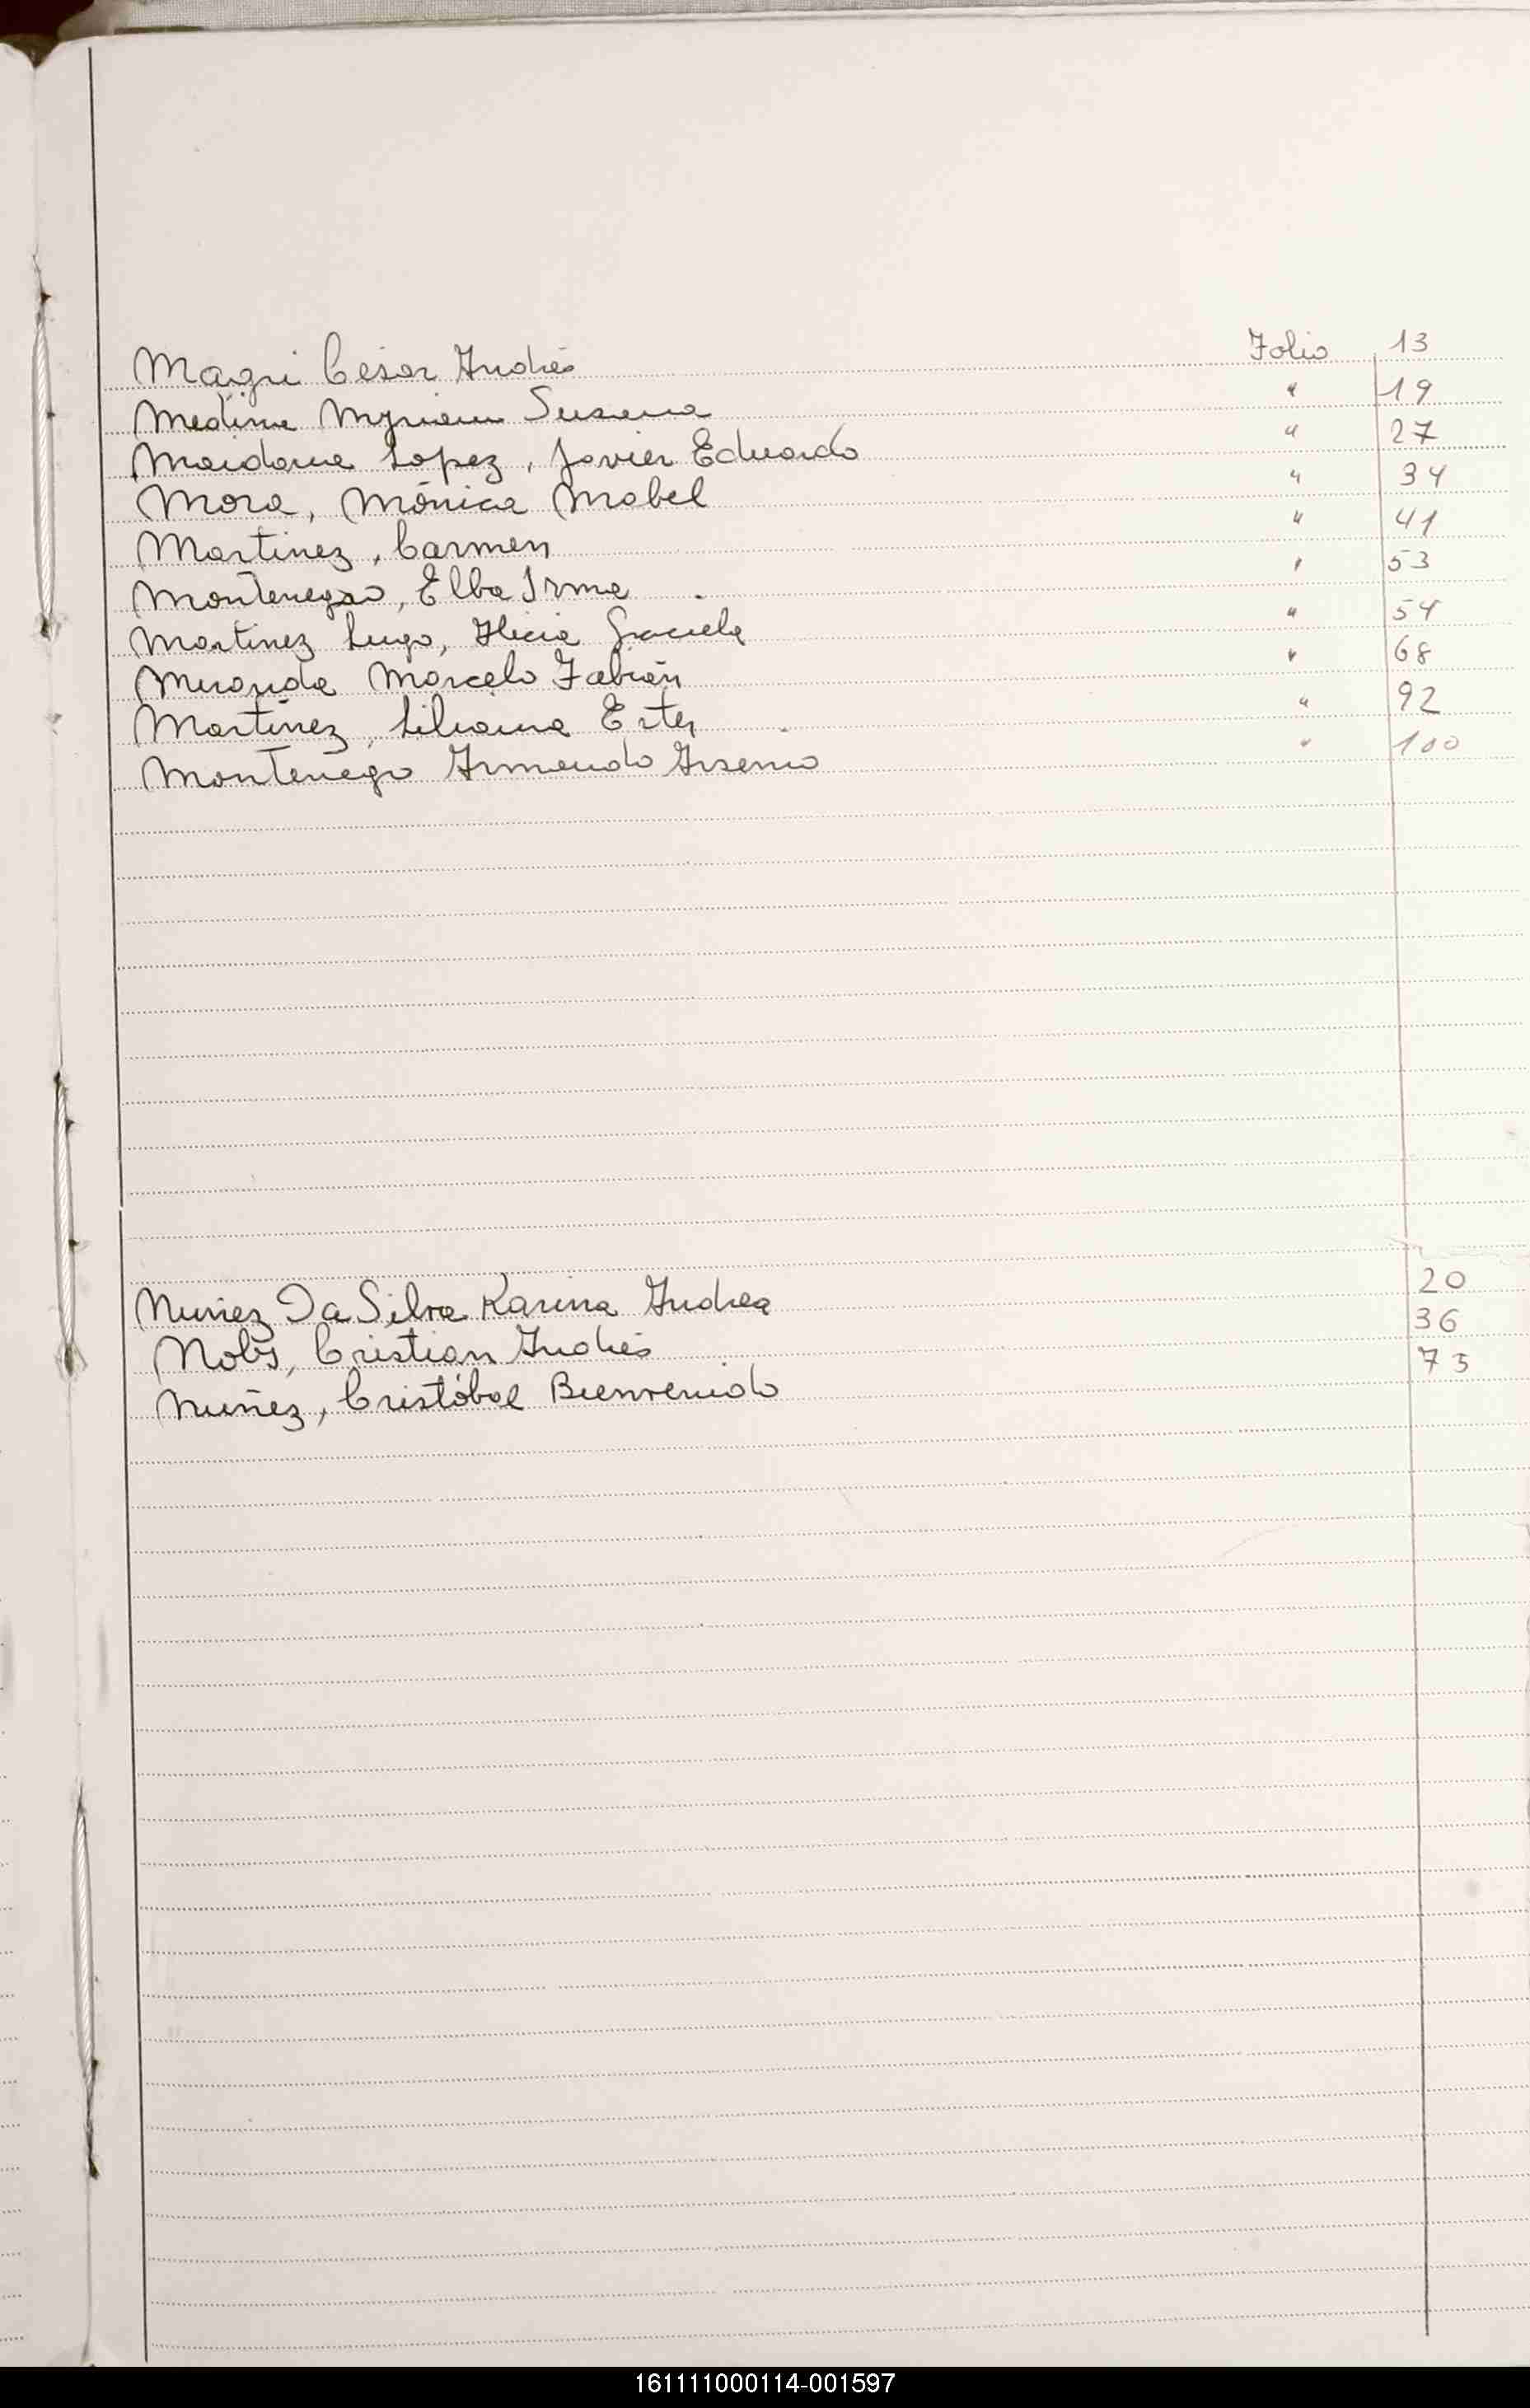 Magri César Andrés Folio 13
Medina Myriam Susana " 19
Maidana Lopez, Javier Eduardo " 27
Mora, Mónica Mabel " 34
Martinez, Carmen " 41
Montenegro, Elba Irma " 53
Martinez Lugo, Alicia Graciela " 54
Miranda Marcelo Fabián " 68
Martínez, Liliana Ester " 92
Montenego Armando Arsenio " 100
Nuñez Da Silva Karina Andrea 20
Nobs, Cristian Andrés 36
Nuñez, Cristóbal Bienvenido 73
161111000114-001597